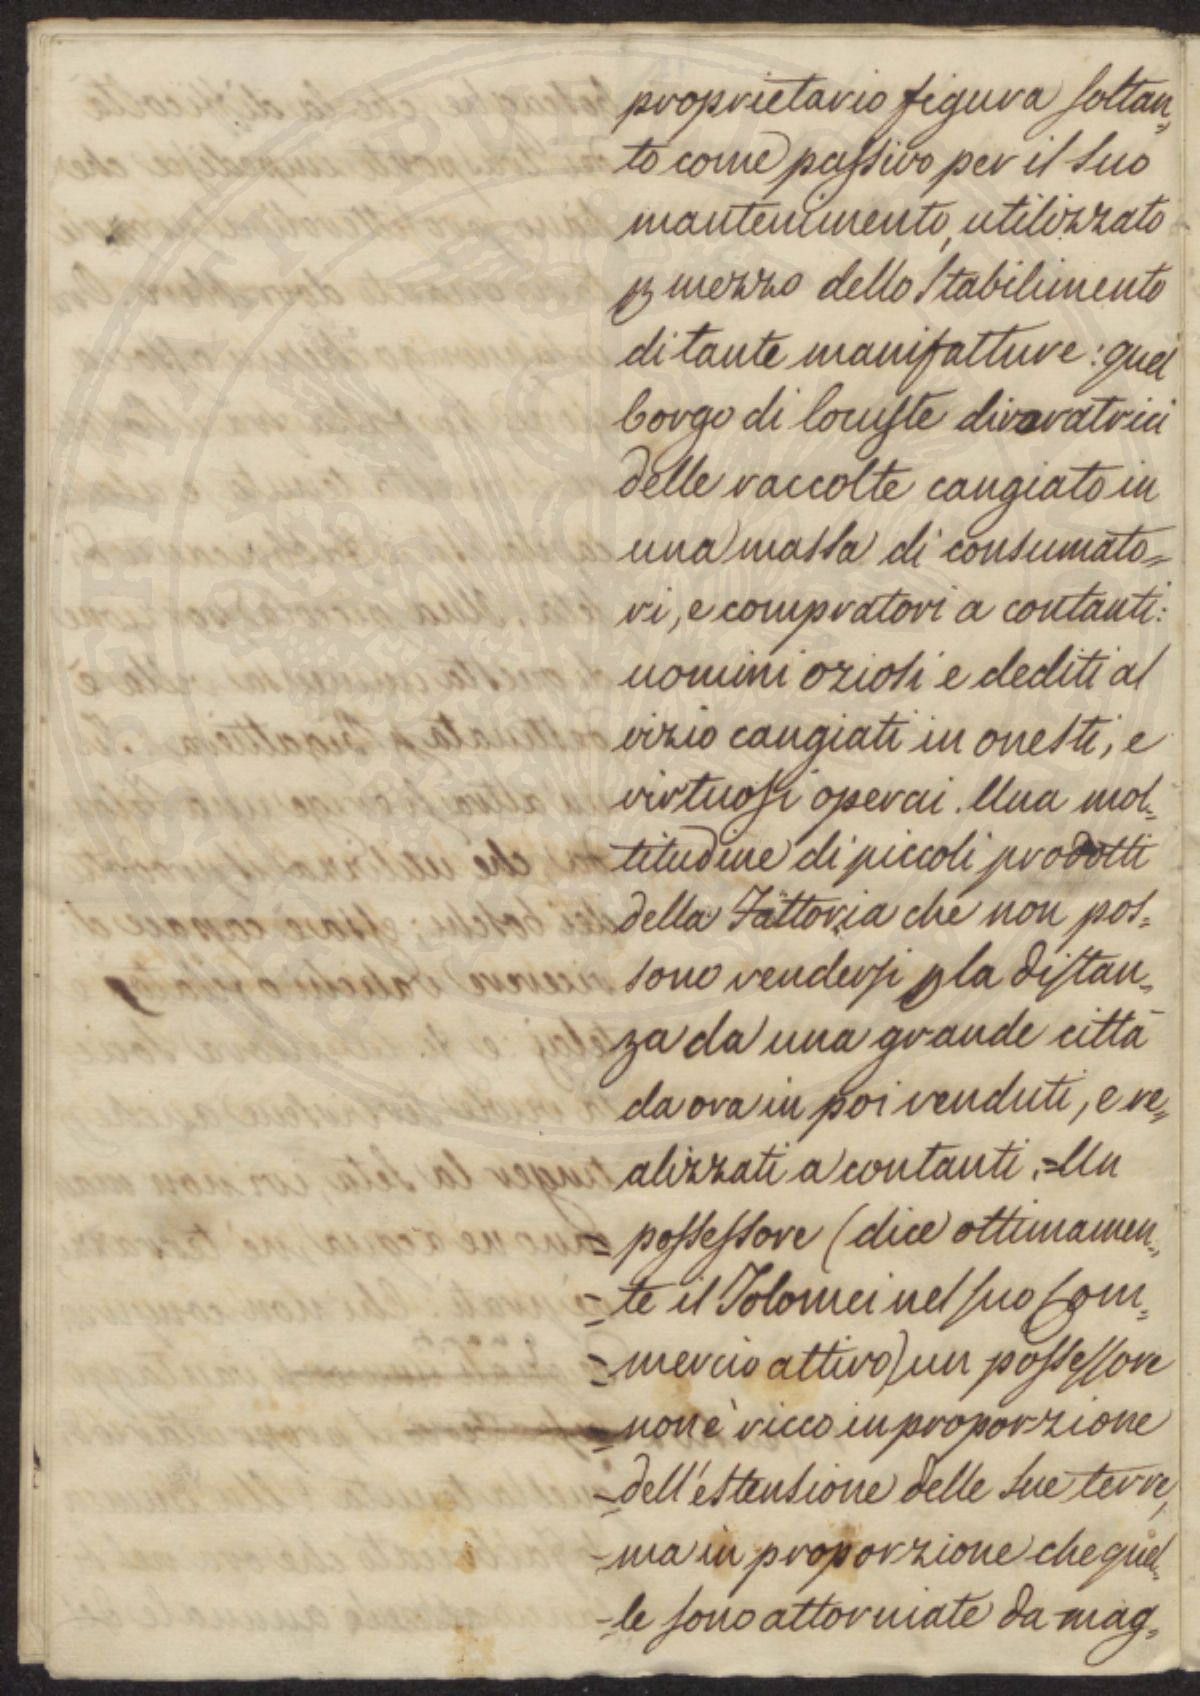 proprietario figura soltan=
to come passivo per il suo
mantenimento, utilizzato
p mezzo dello Stabilimento
di tante manifatture: quel
borgo di locuste divoratrici
delle raccolte cangiato in
una massa di consumato=
ri, e compratori a contanti:
uomini oziosi e dediti al
vizio cangiati in onesti, e
virtuosi operai. Una mol=
titudine di piccoli prodotti
della Fattoria che non pos=
sono vendersi p la distan=
za da una grande città
da ora in poi venduti, e re=
alizzati a contanti. = Un
= possessore (dice ottimamen=
= te il Tolomei nel suo Com=
= mercio attivo) un possessore
= non è ricco in proporzione
= dell'estensione delle sue terre,
= ma in proporzione che quel=
= le sono attorniate da mag=